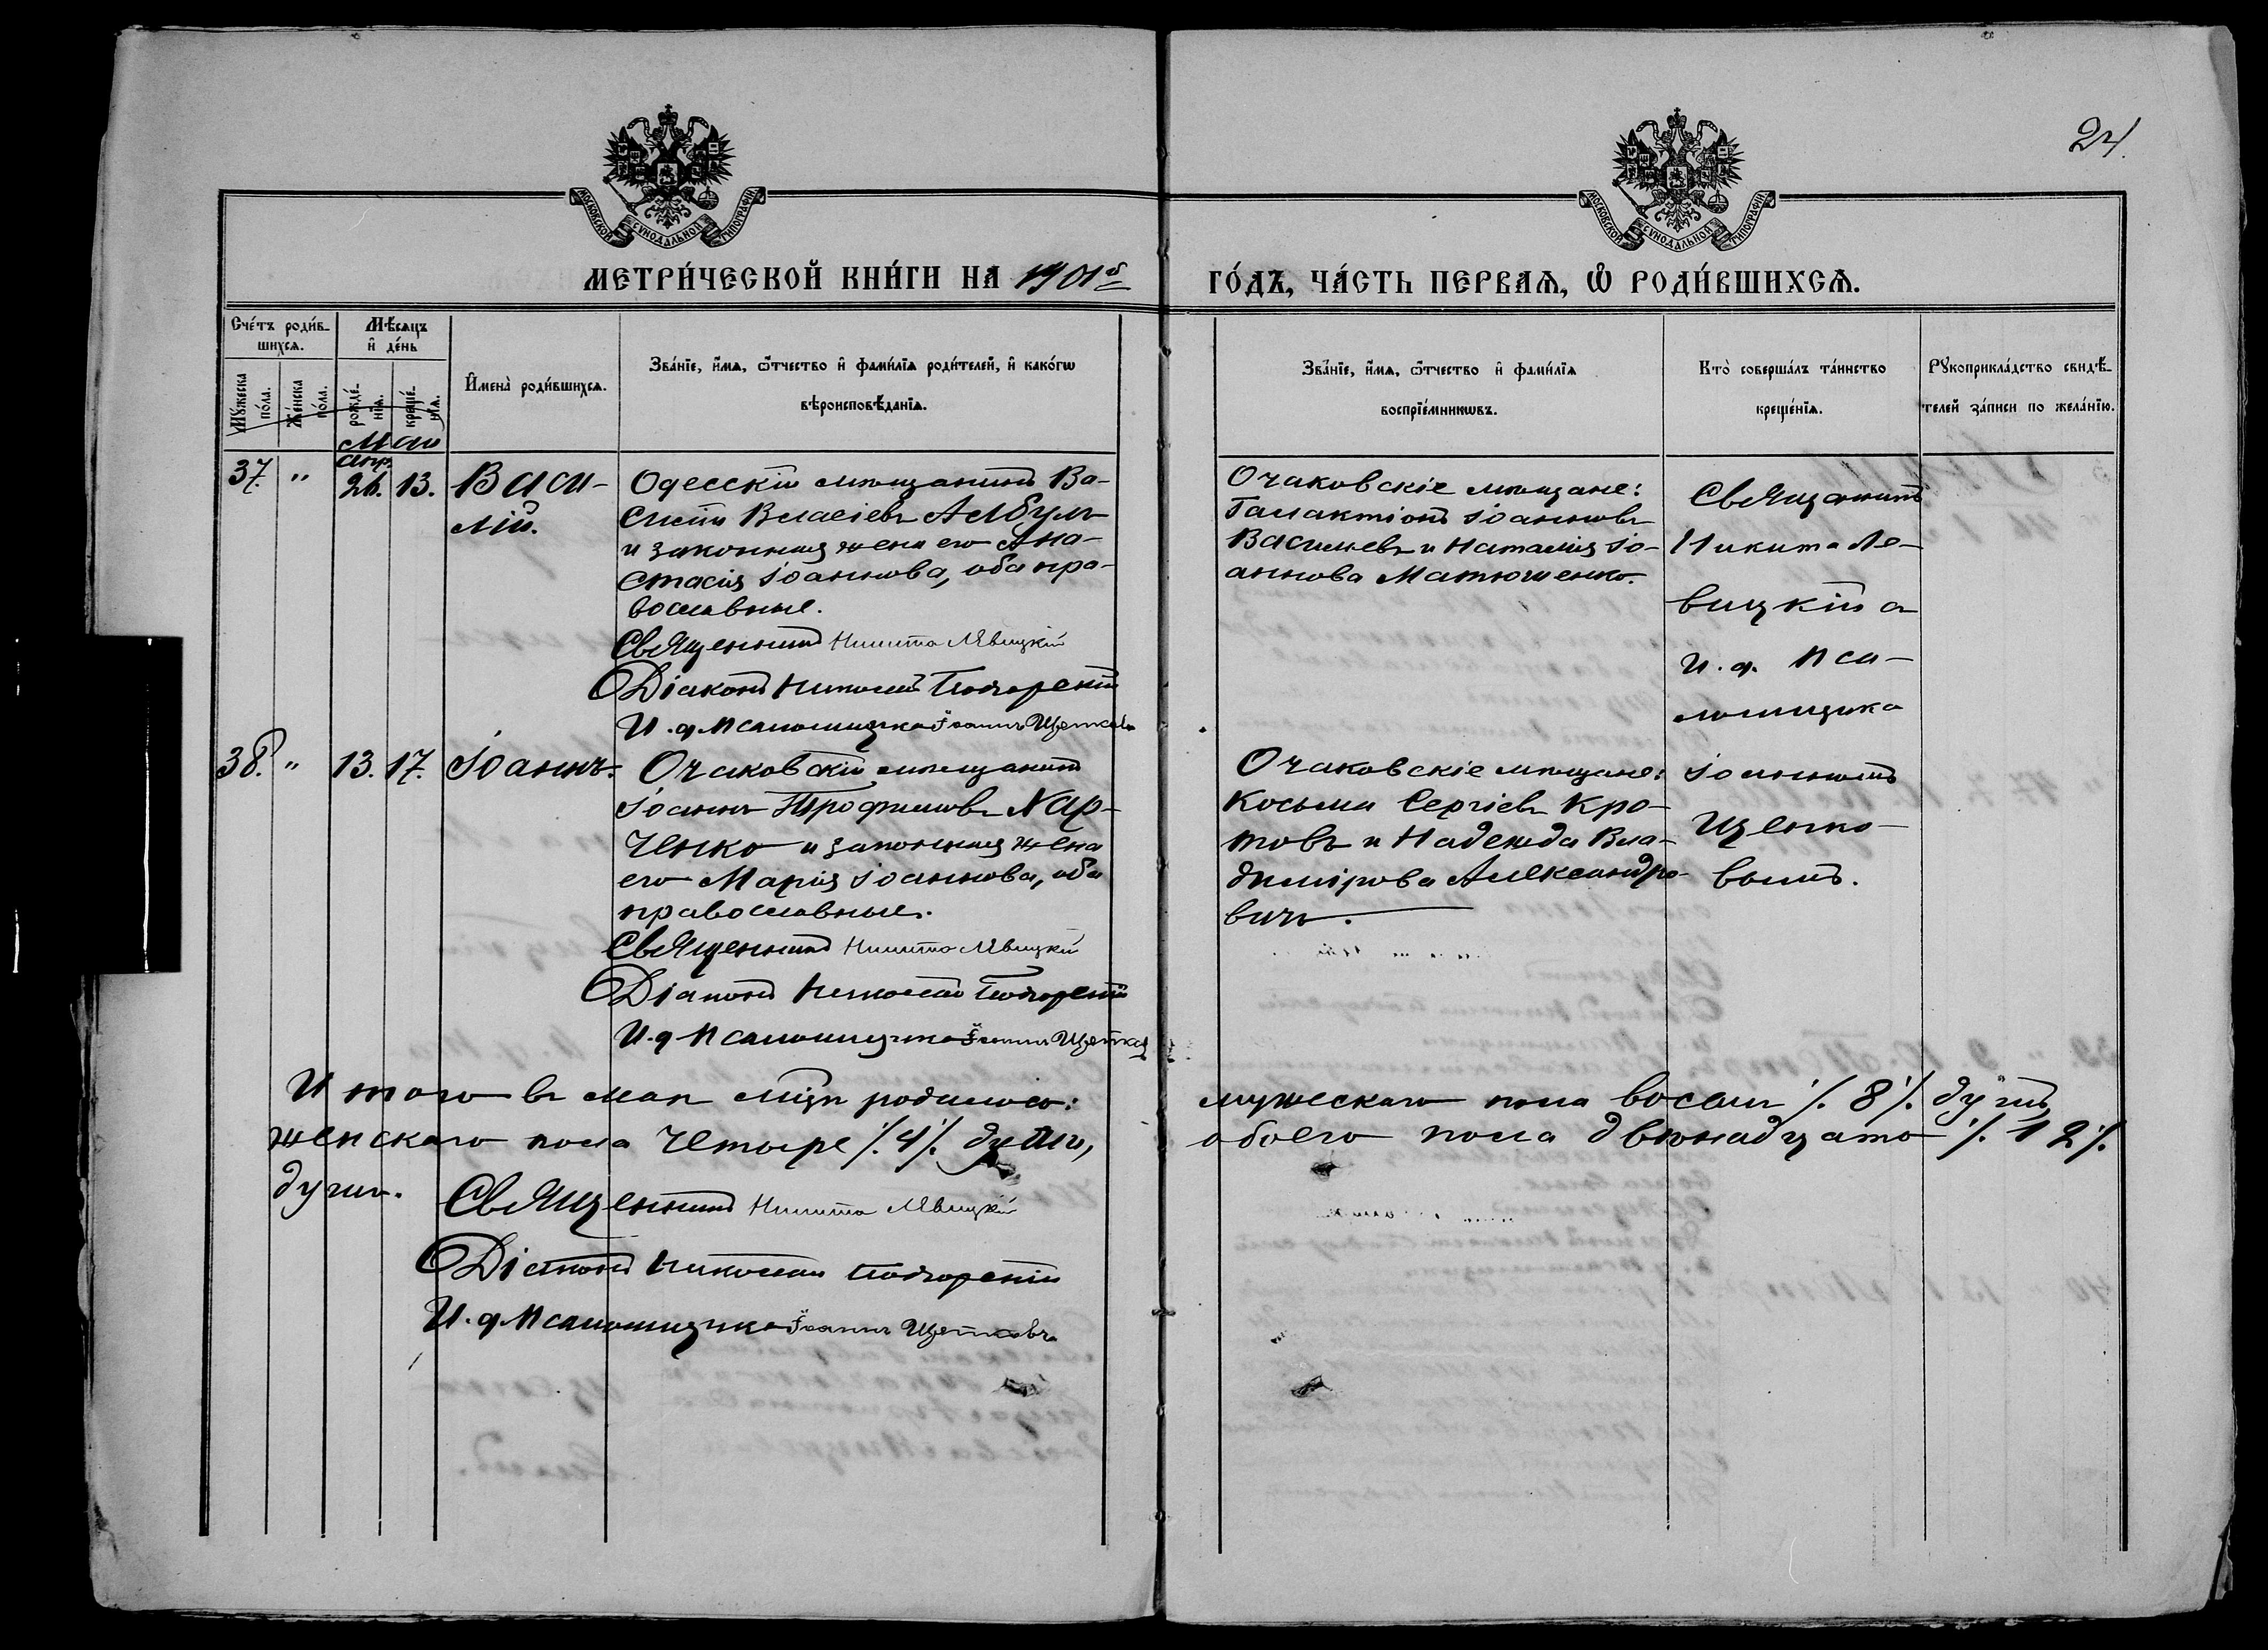 24.
МОСКОВСКОЙ СУНОДАЛЬНОЙ ТИПОГРАФІИ.
МОСКОВСКОЙ СУНОДАЛЬНОЙ ТИПОГРАФІИ.
МЕТРИ́ЧЕСКОЙ КНИ́ГИ НА 1901й ГО́ДЪ, ЧА́СТЬ ПЕРВАѦ, Ѽ РОДИ́ВШИХСѦ.
Сче́тъ роди́в-
шихсѧ.
Мꙋжеска
по́ла.
Же́нска
по́ла.
Мѣ́сѧцъ
и҆ де́нь
рожде́-
нїѧ.
креще́-
нїѧ.
И҆мена̀ роди́вшихсѧ.
Зва́нїе, и҆́мѧ, ѻ҆́тчество и҆ фами́лїѧ роди́телей, и҆ како́гѡ
вѣроисповѣ́данїѧ.
Зва́нїе, и҆́мѧ, ѻ҆́тчество и҆ фами́лїѧ
воспрїе́мникѡвъ.
Кто̀ соверша́лъ та́инство
креще́нїѧ.
Рꙋкоприкла́дство свидѣ́-
телей за́писи по жела́нїю.
Май
37. " Апр. 26. 13. Васи-
лій.
Одесскій мѣщанинъ Ва-
силій Власіевъ Албулъ
и законная жена его Ана-
стасія Іоаннова, оба пра-
вославные.
Священникъ Никита Левицкій
Діаконъ Николай
И. д. Псаломщика Іоаннъ Щетковъ
Очаковскіе мѣщане:
Галактіонъ Іоанновъ
Васильевъ и Наталія Іо-
аннова Матюшенко.
Священникъ
Никита Ле-
вицкій а
И. д. Пса-
ломщика
Іоанномъ
Щетко-
вымъ.
38. " 13. 17. Іоаннъ.
Очаковскій мѣщанинъ
Іоаннъ Трофимовъ Хар-
ченко и законная жена
его Марія Іоаннова, оба
православные.
Священникъ Никита Левицкій
Діаконъ Николай
И. д. Псаломщика Іоаннъ Щетковъ
Очаковскіе мѣщане:
Косьма Сергіевъ Кро-
товъ и Надежда Вла-
димірова Александро-
вичъ.
Итого въ маѣ мцѣ родилось: мужескаго пола восемь /. 8 /. душъ,
женскаго пола четыре /. 4 /. души, обоего пола двѣнадцать /. 12 /.
душъ.
Священникъ Никита Левицкій
Діаконъ Николай
И. д. Псаломщика Іоаннъ Щетковъ